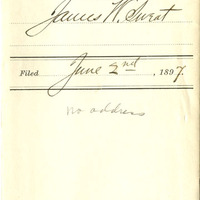 James W. Sweat
Filed June 2nd, 1897.
no address